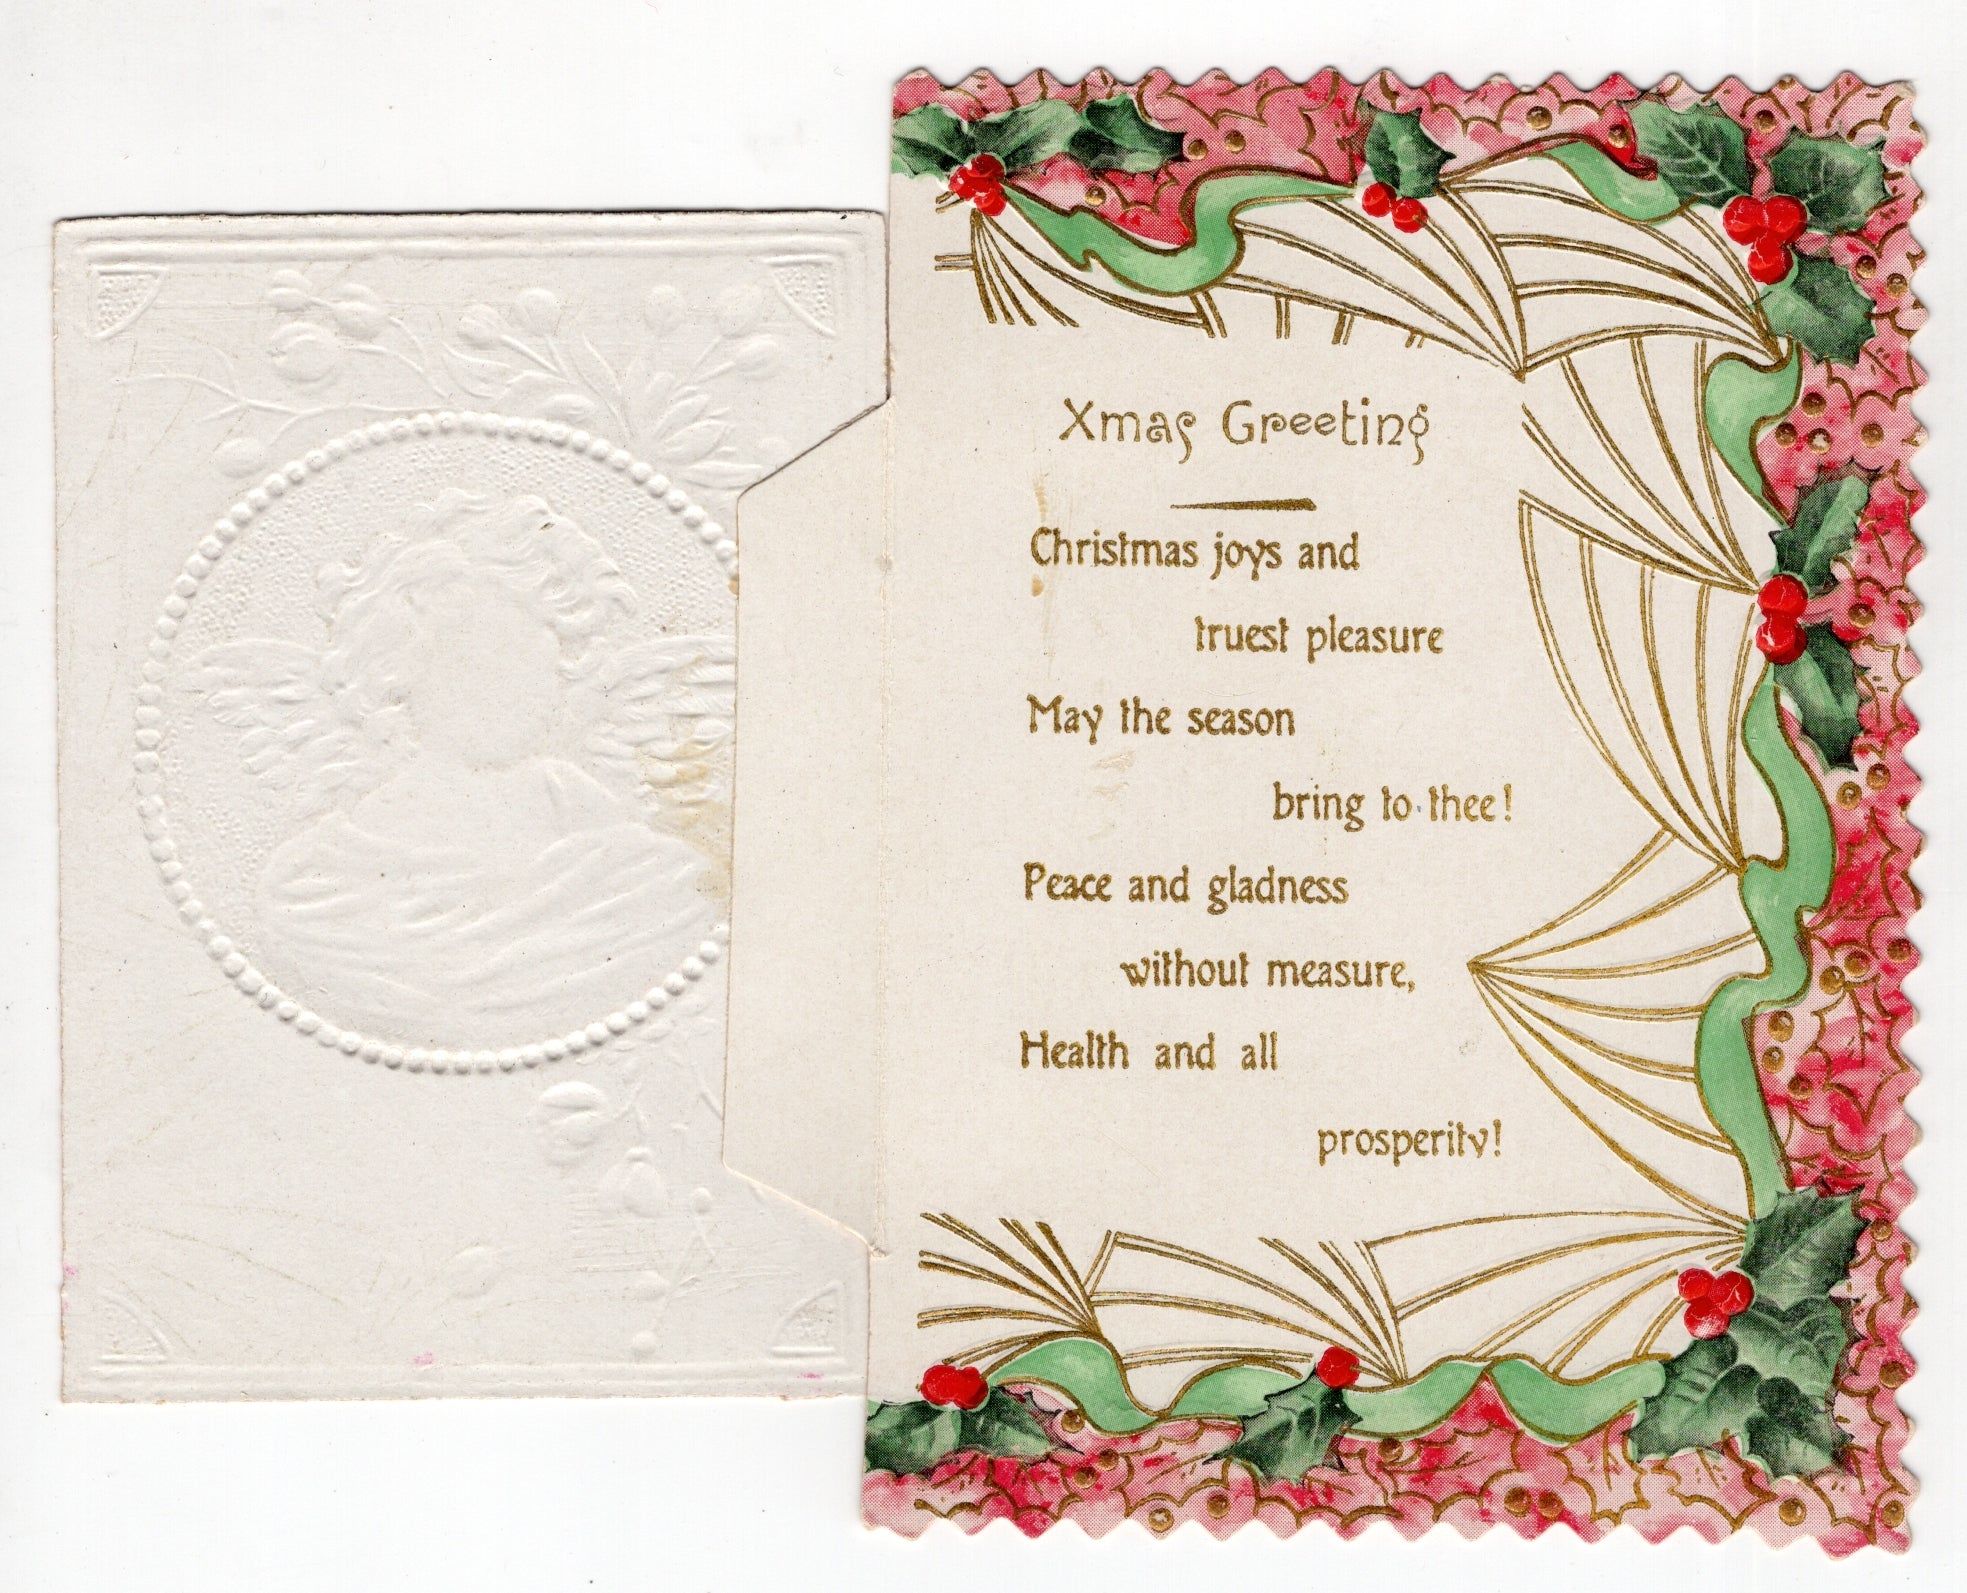 Xmas Greeting
Christmas joys and
truest pleasure
May the season
bring to thee!
Peace and gladness
without measure,
Health and all
prosperity!